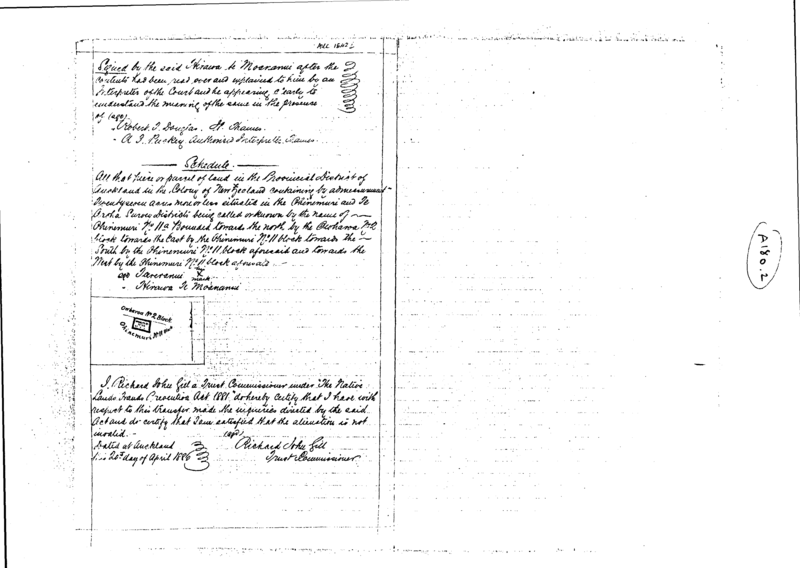 Signed by the said Hirawa te Moananui after the
contents had been read over and explained to him by an
Interpreter of the Court and he appearing clearly to
understand the meaning of the same in the presence
of
Robert J. Douglas. Thames.
A. J. Puckey Authorised Interpreter Thames.
Schedule.
All that piece or parcel of land in the Provincial District of
Auckland in the Colony of New Zealand containing by admeasurement
Twentyseven acres more or less situated in the Ohinemuri and Te
Aroha Survey Districts being called or known by the name of
Ohinemuri No 11a Bounded towards the north by the Owharoa No 2
block towards the East by the Ohinemuri No 11 block towards the
South by the Ohinemuri No 11 block aforesaid and towards the
West by the Ohinemuri No 11 block aforesaid
X
mark
Hirawa Te Moananui
Owharoa No 2 Block
Ohinemuri No 11 Block
I, Richard John Gill a Trust Commissioner under "The Native
Lands Frauds Prevention Act 1881" do hereby certify that I have with
respect to this transfer made the inquiries directed by the said
Act and do certify that I am satisfied that the alienation is not
invalid.
Dated at Auckland
20th day of April 1886
Richard John Gill
Trust Commissioner
A180.2